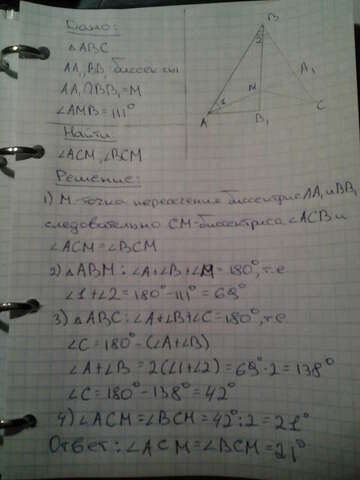 Дано:
△ABC
AA₁, BB₁ биссект-сы
AA₁∩BB₁=M
∠AMB=111°
Найти:
∠ACM, ∠BCM
Решение:
1) M-точка пересечения биссектрис AA₁ и BB₁
следовательно CM-биссектриса ∠ACB и
∠ACM=∠BCM
2) △ABM: ∠A+∠B+∠M=180°, т.е
∠1+∠2=180°-111°=69°
3) △ABC: ∠A+∠B+∠C=180°, т.е
∠C=180°-(∠A+∠B)
∠A+∠B=2(∠1+∠2)=69°·2=138°
∠C=180°-138°=42°
4) ∠ACM=∠BCM=42°:2=21°
Ответ: ∠ACM=∠BCM=21°
B
2
A₁
M
1
A
B₁
C